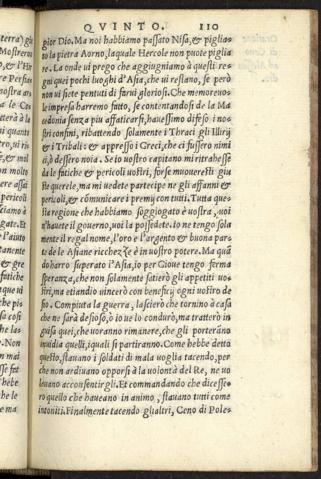 QVINTO. 110
gior Dio. Ma noi habbiamo passato Nisa, & piglia-
to la pietra Aorno, laquale Hercole non puote piglia
re. La onde vi prego che aggiugniamo à questi re-
gni quei pochi luoghi d'Asia, che vi restano, se però
non vi siete pentuti di farui gloriosi. Che memoreuo-
le impresa harremo fatto, se contentandosi de la Ma
cedonia senza piu affaticarsi, hauessimo difeso i no-
stri confini, ributtendo solamente i Thraci gli Illirij
e i Triballi: & appresso i Greci, che ci fussero nimi
ci, ò dessero noia. Se io vostro capitano mi ritrahesse
da le fatiche & pericoli vostri, forse muouerestì giu
ste querele, ma mi vedete partecipe ne gli affanni &
pericoli, & communicare i premij con tutti. Tutta que
sta regione che habbiamo soggiogato è vostra, voi
n'hauete il gouerno, voi la possedete. Io ne tengo sola
mente il regal nome, l'oro e l'argento & buona par-
te de le Asiane ricchezze è in vostro potere. Ma quã
do harro superato l'Asia, io per Gioue tengo ferma
speranza, che non solamente satierò gli appetiti vo-
stri, ma etiandio vincerò con beneficij ogni vostro de
sio. Compiuta la guerra, lascierò che tornino à casa
che ne sarà desioso, ò io ue lo condurò, ma tratterò in
guisa quei, che uorranno rimanere, che gli porterãno
inuidia quelli, i quali si partiranno. Come hebbe detto
questo, stauano i soldati di mala voglia tacendo, per
che non ardiuano opporsi à la volontà del Re, ne uo
leuano acconsentir gli. Et commandando che dicesse-
ro quello che haueano in animo, stauano tutti come
intoniti. Finalmente tacendo gli altri, Ceno di Pole-